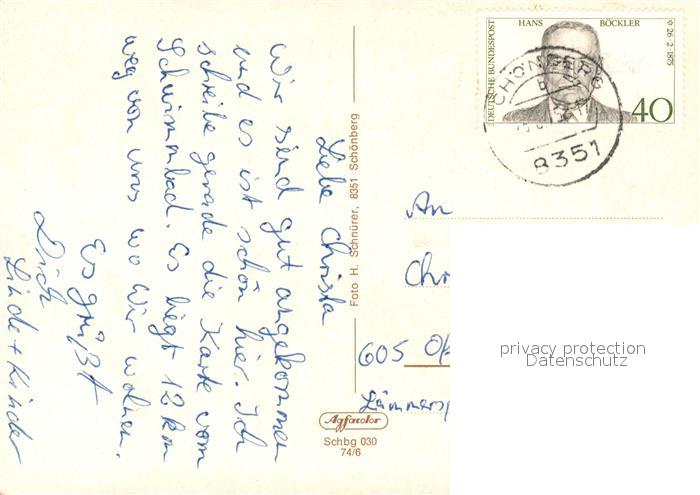 Liebe Christa
Wir sind gut angekommen
und es ist schön hier. Ich
schreibe gerade die Karte vom
Schwimmbad. Es liegt 12 km
weg von uns wo wir wohnen.
Es grüßt
Dich
Linde + Kinder
Foto H. Schnürer, 8351 Schönberg
Agfacolor
Schbg 030
74/6
DEUTSCHE BUNDESPOST
HANS BÖCKLER
* 26·2·1875
40
SCHÖNBERG
b
8351
An
Chr
605 Of
Lämmersp
privacy protection
Datenschutz